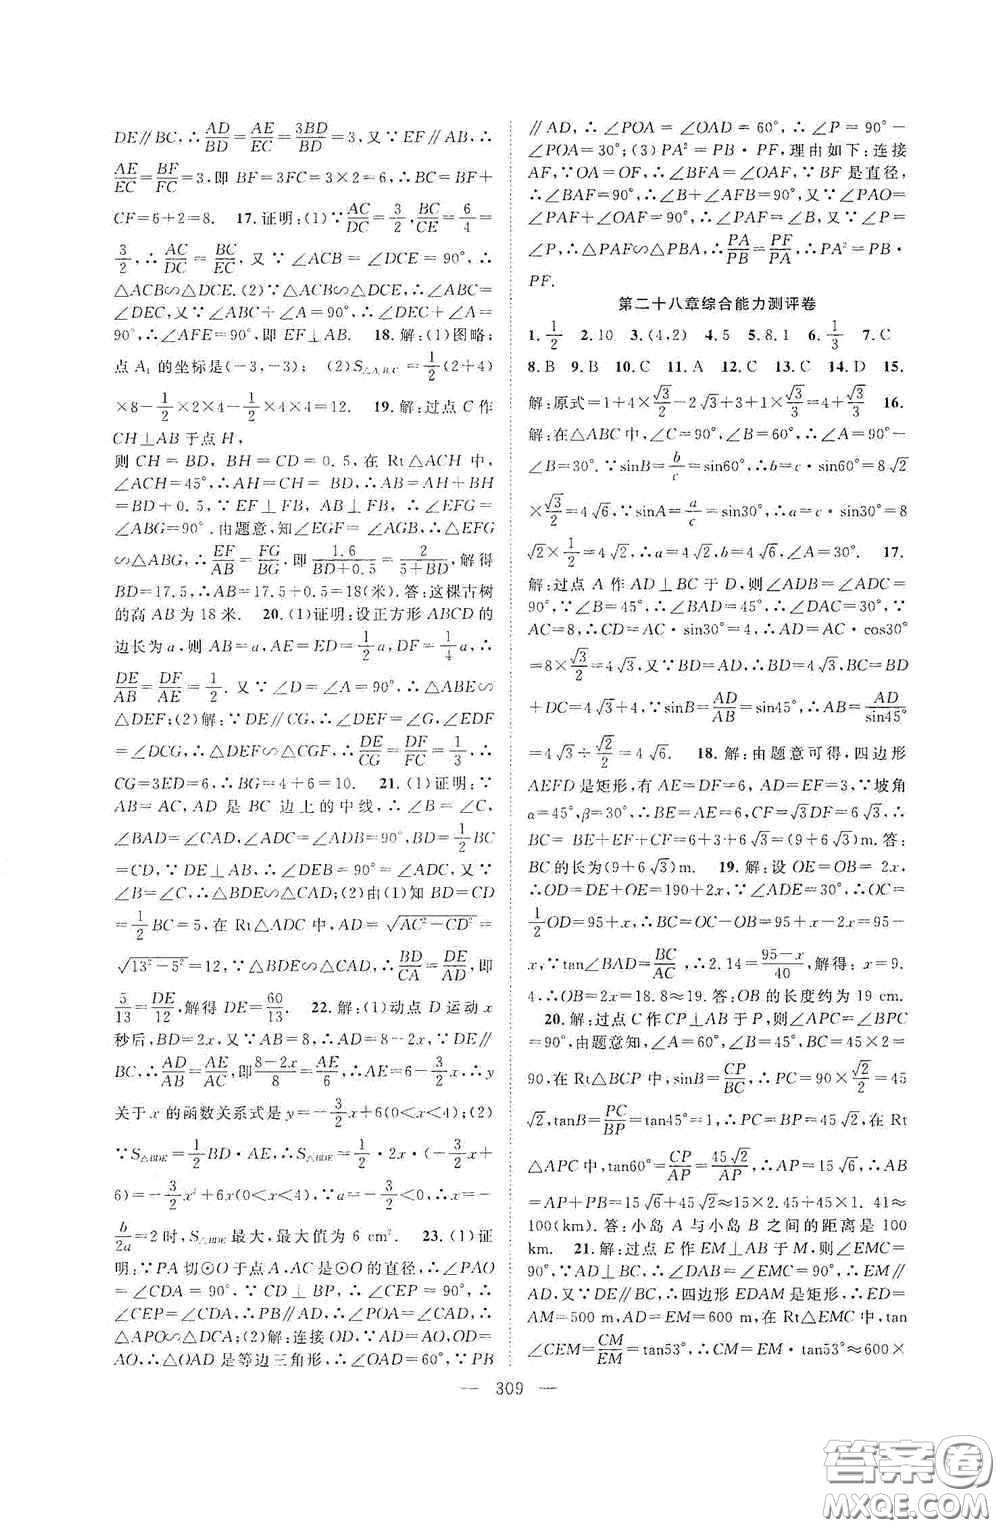 DE∥BC,∴AD/BD=AE/EC=3BD/BD=3,又∵EF∥AB,∴
AE/EC=BF/FC=3,即 BF=3FC=3×2=6,∴BC=BF+
CF=6+2=8. 17.证明:(1)∵AC/DC=3/2,BC/CE=6/4=
3/2,∴AC/DC=BC/EC,又∵∠ACB=∠DCE=90°,∴
△ACB∽△DCE.(2)∵△ACB∽△DCE,∴∠ABC=
∠DEC,又∵∠ABC+∠A=90°,∴∠DEC+∠A=
90°,∴∠AFE=90°,即 EF⊥AB. 18.解:(1)图略;
点 A₁ 的坐标是(-3,-3); (2)S△A₁B₁C=1/2(2+4)
×8-1/2×2×4-1/2×4×4=12. 19.解:过点 C 作
CH⊥AB 于点 H,
则 CH=BD, BH=CD=0.5,在 Rt△ACH 中,
∠ACH=45°,∴AH=CH=BD,∴AB=AH+BH
=BD+0.5,∵EF⊥FB, AB⊥FB,∴∠EFG=
∠ABG=90°.由题意,知∠EGF=∠AGB,∴△EFG
∽△ABG,∴EF/AB=FG/BG,即1.6/(BD+0.5)=2/(5+BD),解得
BD=17.5,∴AB=17.5+0.5=18(米).答:这棵古树
的高 AB 为 18 米. 20.(1)证明:设正方形 ABCD 的
边长为 a,则 AB=a,AE=ED=1/2a,DF=1/4a,∴
DE/AB=DF/AE=1/2.又∵∠D=∠A=90°,∴△ABE∽
△DEF;(2)解:∵DE∥CG,∴∠DEF=∠G,∠EDF
=∠DCG,∴△EDF∽△CGF,∴DE/CG=DF/FC=1/3,∴
CG=3ED=6,∴BG=4+6=10. 21.(1)证明:∵
AB=AC,AD 是 BC 边上的中线,∴∠B=∠C,
∠BAD=∠CAD,∠ADC=∠ADB=90°,BD=1/2BC
=CD,又∵DE⊥AB,∴∠DEB=90°=∠ADC,又∵
∠B=∠C,∴△BDE∽△CAD;(2)由(1)知 BD=CD
=1/2BC=5,在 Rt△ADC 中,AD=√(AC²-CD²)=
√(13²-5²)=12,∵△BDE∽△CAD,∴BD/CA=DE/AD,即
5/13=DE/12,解得 DE=60/13. 22.解:(1)动点 D 运动 x
秒后,BD=2x,又∵AB=8,∴AD=8-2x.∵DE∥
BC,∴AD/AB=AE/AC,即(8-2x)/8=AE/6,∴AE=6-3/2x,∴y
关于 x 的函数关系式是 y=-3/2x+6(0<x<4);(2)
∵S△BDE=1/2BD·AE,∴S△BDE=1/2·2x·(-3/2x+
6)=-3/2x²+6x(0<x<4),∵a=-3/2<0,∴当 x=-
b/2a=2 时,S△BDE最大,最大值为 6 cm². 23.(1)证
明:∵PA 切⊙O 于点 A,AC 是⊙O 的直径,∴∠PAO
=∠CDA=90°,∵CD⊥BP,∴∠CEP=90°,∴
∠CEP=∠CDA,∴PB∥AD,∴∠POA=∠CAD,∴
△APO∽△DCA;(2)解:连接 OD,∵AD=AO,OD=
AO,∴△OAD 是等边三角形,∴∠OAD=60°,∵PB
∥AD,∴∠POA=∠OAD=60°,∴∠P=90°-
∠POA=30°;(3)PA²=PB·PF,理由如下:连接
AF,∵OA=OF,∴∠BFA=∠OAF,∵BF 是直径,
∴∠BAF=90°,∴∠B+∠AFB=90°,又∵∠PAO=
∠PAF+∠OAF=90°,∴∠PAF=∠B,又∵∠P=
∠P,∴△PAF∽△PBA,∴PA/PB=PF/PA,∴PA²=PB·
PF.
第二十八章综合能力测评卷
1.1/2 2.10 3.(4,2) 4.5 5.8.1 6.1/3 7.C
8.B 9.B 10.C 11.A 12.C 13.C 14.D 15.
解:原式=1+4×√3/2-2√3+3+1×√3/3=4+√3/3 16.
解:在△ABC 中,∠C=90°,∠B=60°,∴∠A=90°-
∠B=30°.∵sinB=b/c=sin60°,∴b=c·sin60°=8√2
×√3/2=4√6,∵sinA=a/c=sin30°,∴a=c·sin30°=8
√2×1/2=4√2,∴a=4√2,b=4√6,∠A=30°. 17.
解:过点 A 作 AD⊥BC 于 D,则∠ADB=∠ADC=
90°,∵∠B=45°,∴∠BAD=45°,∴∠DAC=30°,∵
AC=8,∴CD=AC·sin30°=4,∴AD=AC·cos30°
=8×√3/2=4√3,又∵BD=AD=4√3,∴BC=BD
+DC=4√3+4,∵sinB=AD/AB=sin45°,∴AB=AD/sin45°
=4√3÷√2/2=4√6. 18.解:由题意可得,四边形
AEFD 是矩形,有 AE=DF=6, AD=EF=3,∵坡角
α=45°,β=30°,∴BE=AE=6,CF=√3DF=6√3,∴
BC= BE+EF+CF=6+3+6√3=(9+6√3)m.答:
BC 的长为(9+6√3)m. 19.解:设 OE=OB=2x,
∴OD=DE+OE=190+2x,∵∠ADE=30°,∴OC=
1/2OD=95+x,∴BC=OC-OB=95+x-2x=95-
x,∵tan∠BAD=BC/AC,∴2.14=(95-x)/40,解得:x=9.
4,∴OB=2x=18.8≈19.答:OB 的长度约为 19 cm.
20.解:过点 C 作 CP⊥AB 于 P,则∠APC=∠BPC
=90°,由题意知,∠A=60°,∠B=45°,BC=45×2=
90,在 Rt△BCP 中,sinB=CP/BC,∴PC=90×√2/2=45
√2,tanB=PC/BP=tan45°=1,∴PC=BP=45√2,在 Rt
△APC 中,tan60°=CP/AP=45√2/AP,∴AP=15√6,∴AB
=AP+PB=15√6+45√2≈15×2.45+45×1.41≈
100(km).答:小岛 A 与小岛 B 之间的距离是 100
km. 21.解:过点 E 作 EM⊥AB 于 M,则∠EMC=
90°,∵AD⊥BC,∴∠DAB=∠EMC=90°,∴EM∥
AD,又∵DE∥BC,∴四边形 EDAM 是矩形,∴ED=
AM=500 m,AD=EM=600 m,在 Rt△EMC 中,tan
∠CEM=CM/EM=tan53°,∴CM=EM·tan53°≈600×
— 309 —
答案圈
MXQE.COM